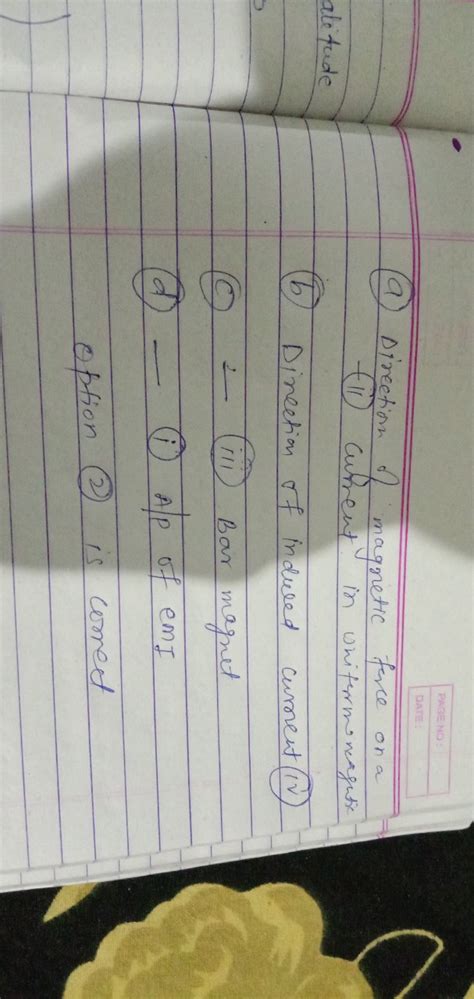 alitude
PAGE NO:
DATE:
(a) Direction of magnetic force on a
-(ii) current in uniform magnetic
(b) Direction of induced current (iv)
(c) - (iii) Bar magnet
(d) - (i) A/P of EMI
option (2) is correct